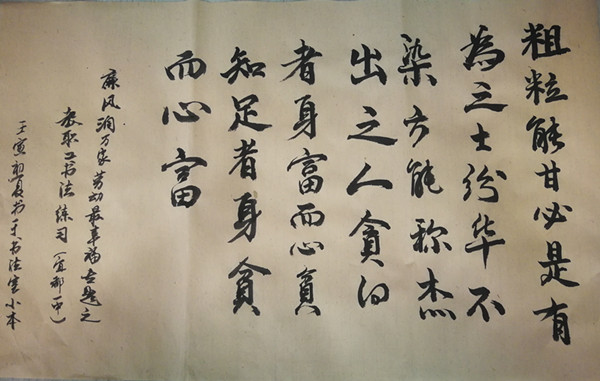 粗粝能甘必是有
為之士纷华不
染方能称杰
出之人貪得
者身富而心貧
知足者身貧
而心富
廉风润万家劳动最幸福主题之
教职工书法练习（宜都一中）
壬寅初夏书于书法室小本